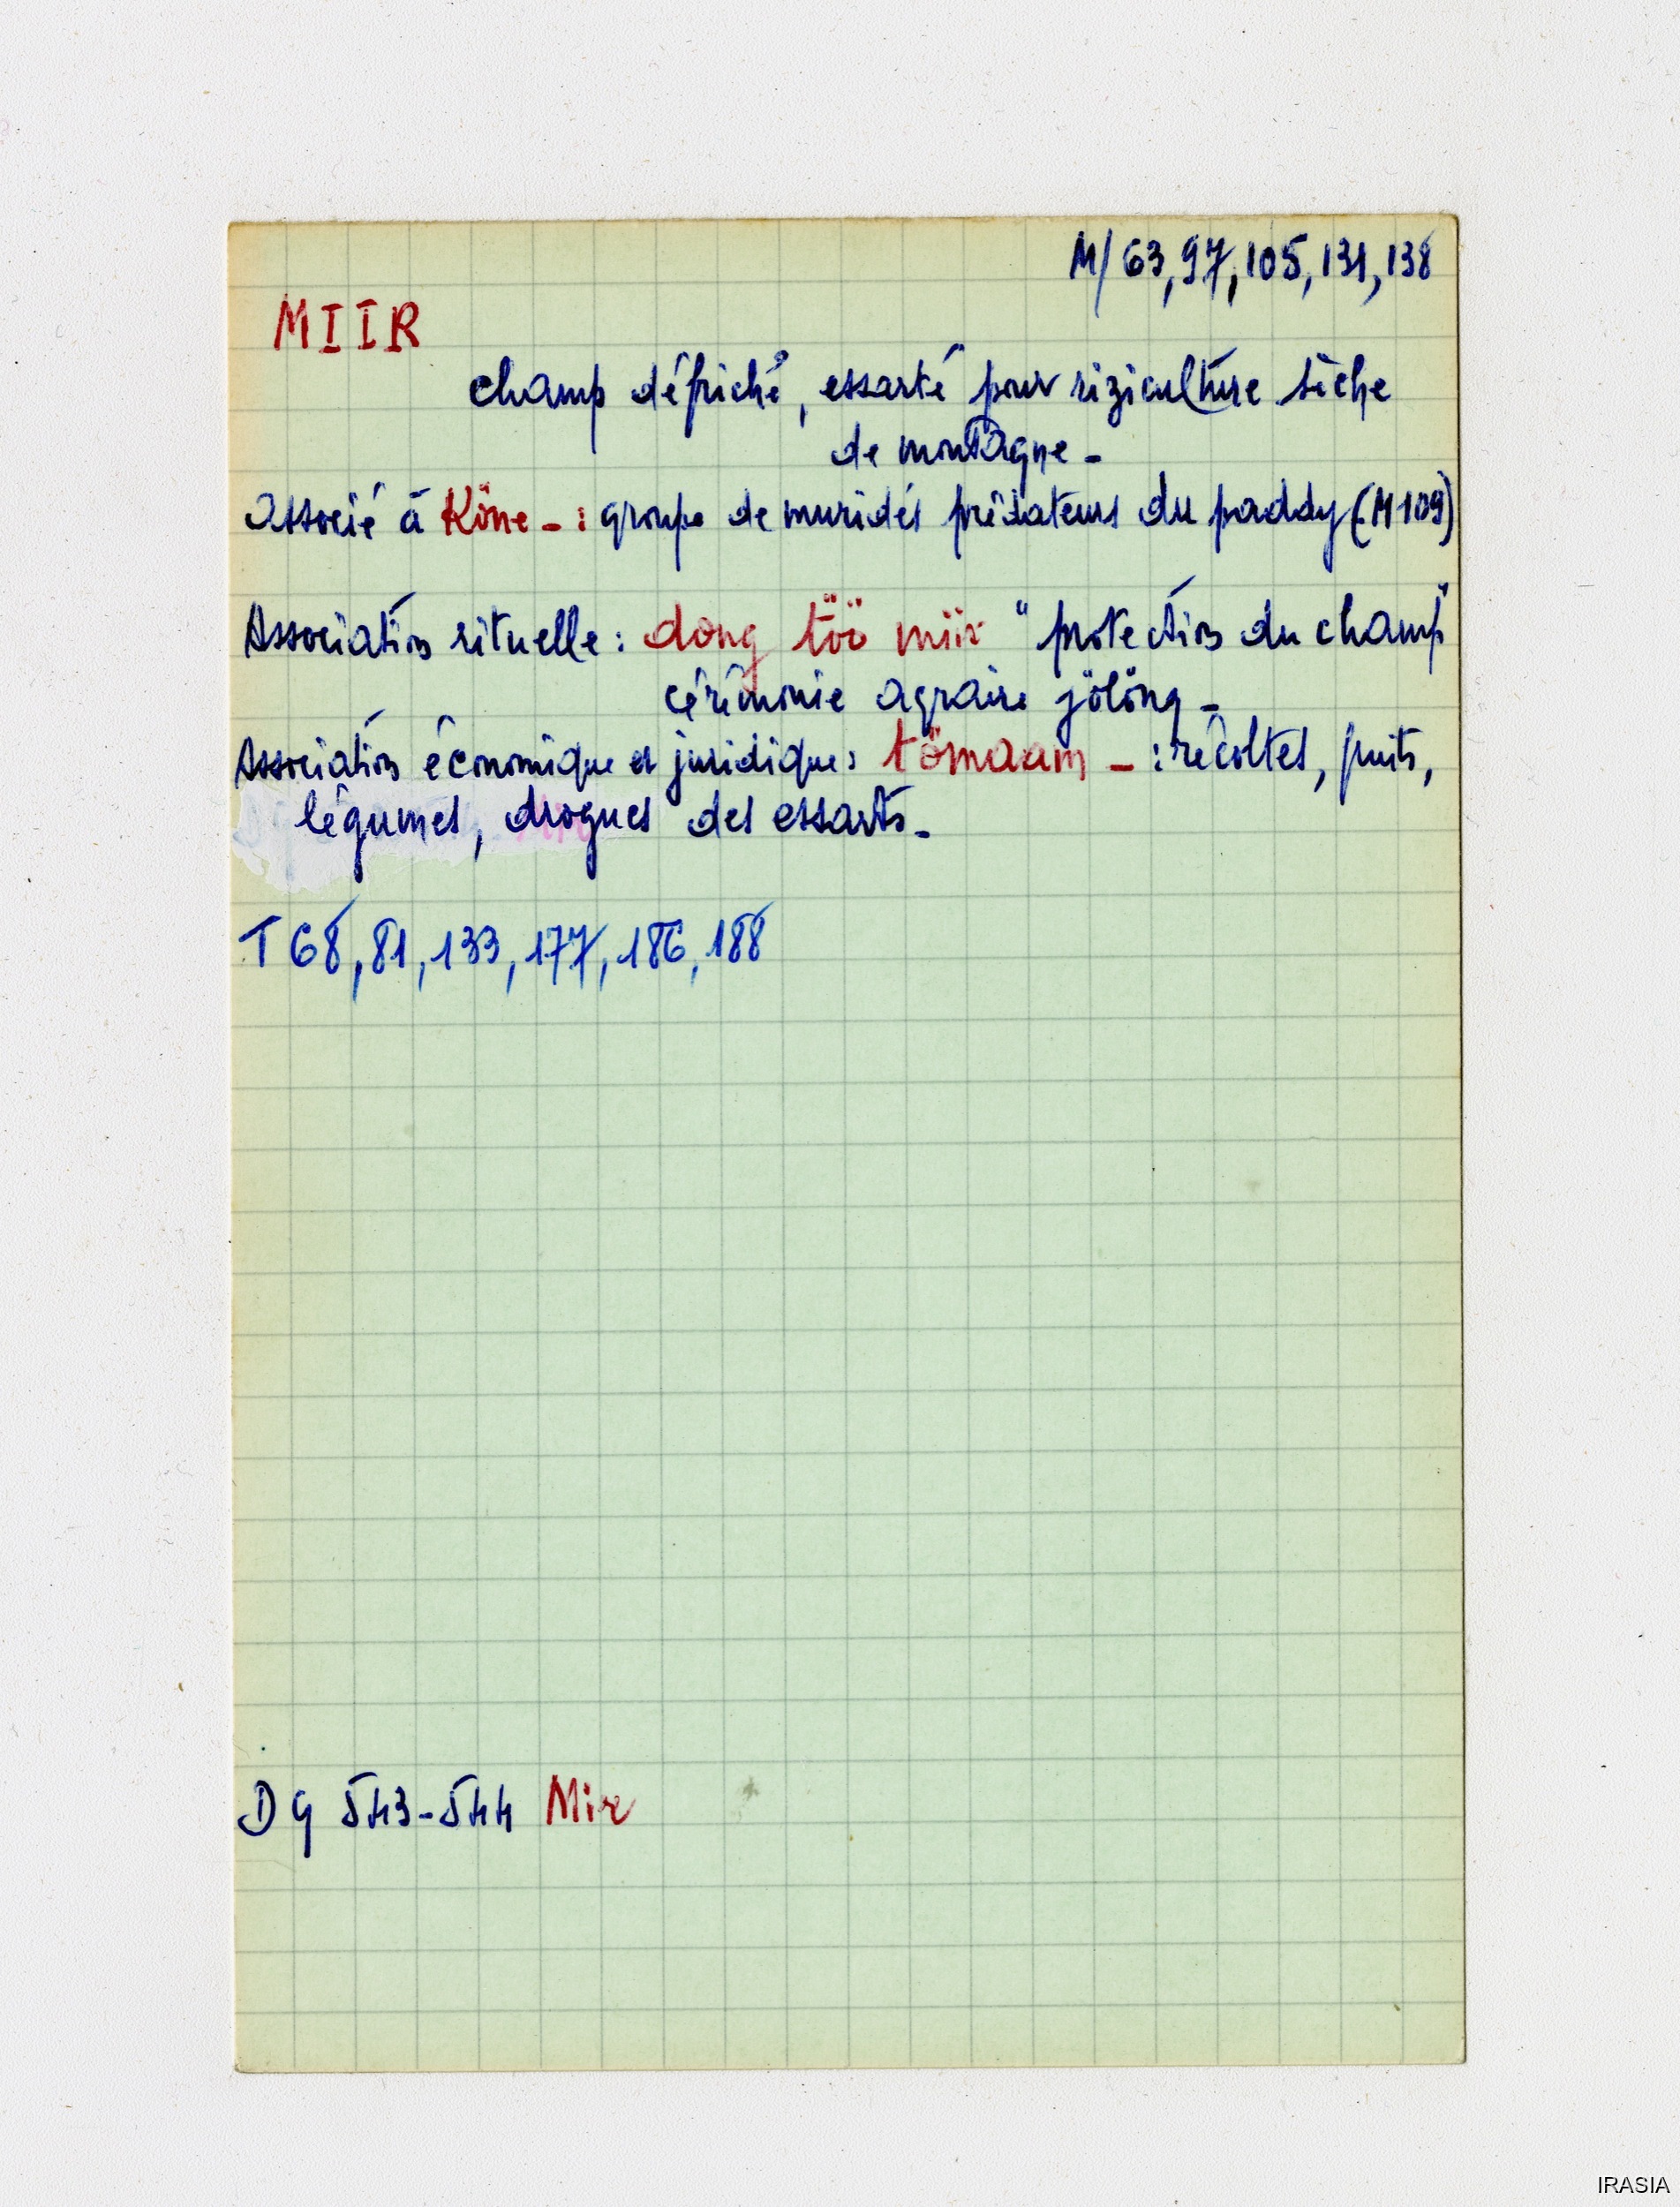 M/ 63, 97, 105, 131, 138
MIIR
champ défriché, essarté pour riziculture sèche
de montagne -
Associé à Köne - : groupe de muridés prédateurs du paddy (M 109)
Association rituelle : dong töö miir "protection du champ"
cérémonie agraire jölöng -
Association économique et juridique : tömaam - : récoltes, fruits,
légumes, drogues des essarts -
T 68, 81, 133, 177, 186, 188
DG 543-544 Mir
IRASIA